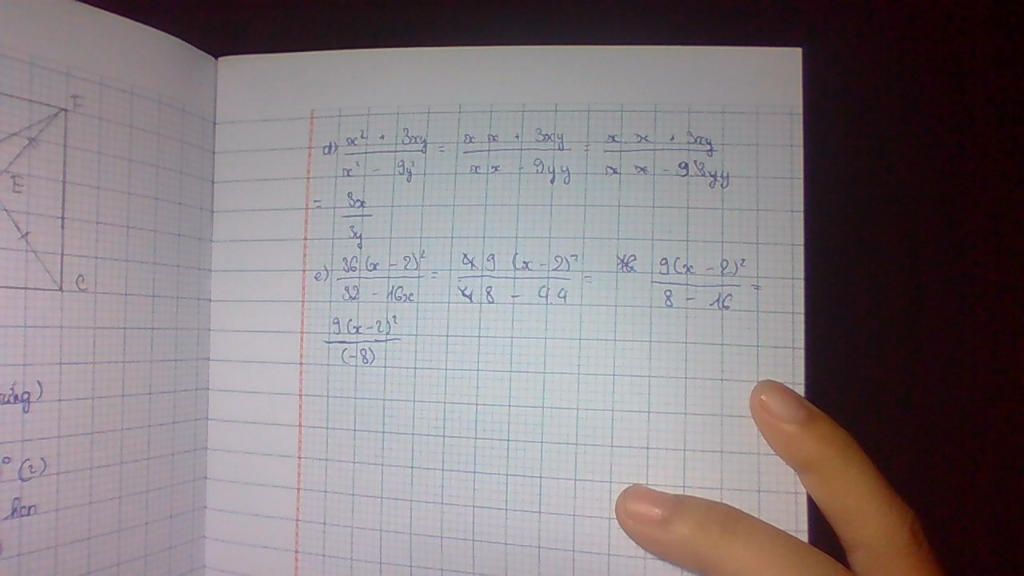 F
E
C
ứng)
° (2)
hơn
d) \frac{x² + 3xy}{x² - 9y²} = \frac{x x + 3xy}{x x - 9yy} = \frac{x x + 3xy}{x x - 9 3yy}
= \frac{3x}{3y}
e) \frac{36(x - 2)²}{32 - 16x} = \frac{4 9 (x - 2)²}{4 8 - 44} = \frac{9(x - 2)²}{8 - 16} =
\frac{9(x-2)²}{(-8)}